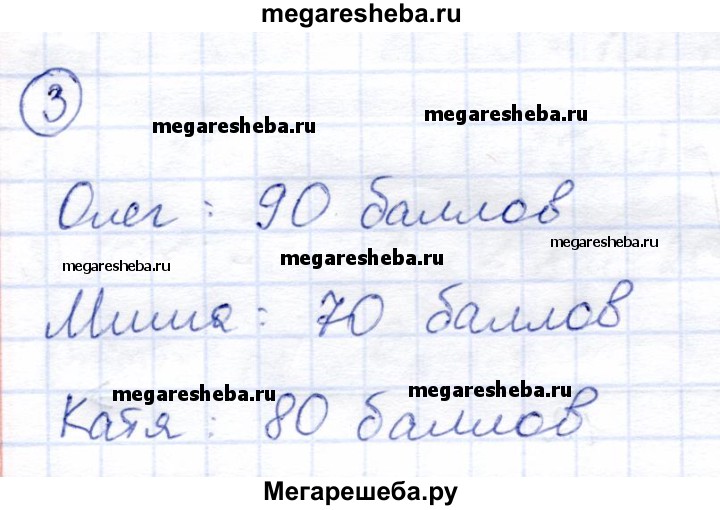 megaresheba.ru
3
megaresheba.ru megaresheba.ru
Олег : 90 баллов
megaresheba.ru
megaresheba.ru megaresheba.ru
Миша : 70 баллов
megaresheba.ru megaresheba.ru
Катя : 80 баллов
Мегарешеба.ру